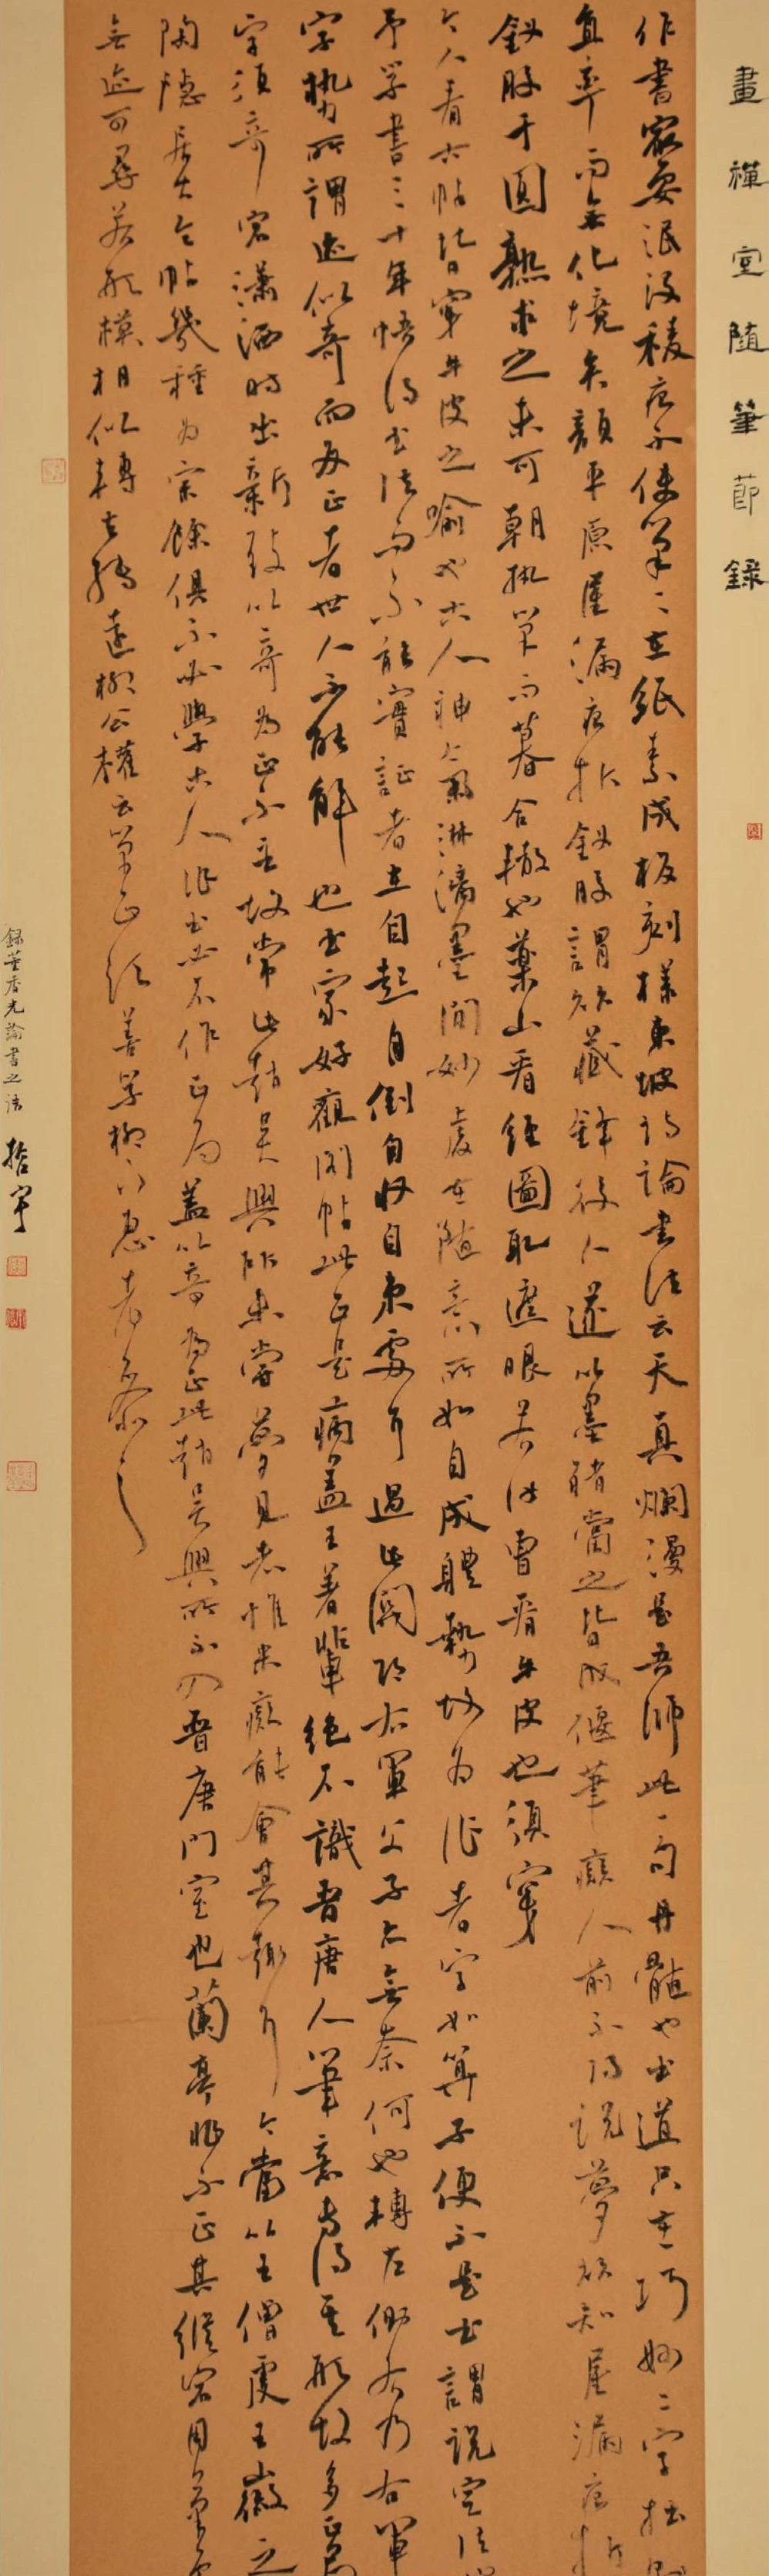 畫禪室隨筆節錄
作書最要泯沒稜痕不使筆〻在紙素成板刻樣東坡詩論書法云天真爛漫是吾師此一句丹髓也書道只在巧妙二字拙則
直率而無化境矣顏平原屋漏痕折釵股謂欲藏鋒後人遂以墨豬當之皆成偃筆癡人前不得說夢欲知屋漏痕折
釵股于圓熟求之未可朝執筆而暮合轍也藥山看經圖取遮眼若汝曹看牛皮也須穿
今人看古帖皆穿牛皮之喻也古人神氣淋漓墨間妙處在隨意所如自成體勢故為作者字如算子便不是書謂說定法
予學書三十年悟得書法而不能實証者在自起自倒自收自束處耳過此關即右軍父子亦無奈何也轉左側右乃右軍
字勢所謂迹似奇而反正者世人不能解也書家好觀閣帖此正是病蓋王著輩絕不識晉唐人筆意專得其形故多正局
字須奇宕瀟洒時出新致以奇為正不主故常此趙吳興所未嘗夢見者惟米癡能會其趣耳今當以王僧虔王徽之
陶隱居大令帖幾種為宗餘俱不必學古人作書必不作正局蓋以奇為正此趙吳興所不入晉唐門室也蘭亭非不正其縱宕用筆處
無迹可尋若形模相似轉去轉遠柳公權云筆正須善學柳下惠者參之
錄董香光論書之語